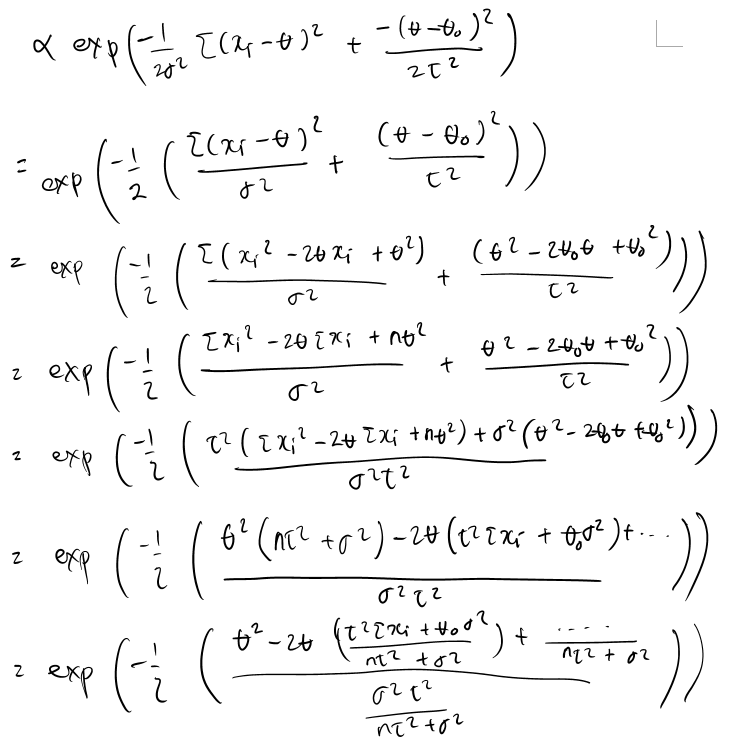 ∝ exp(-1/2σ² Σ(xᵢ-θ)² + -(θ-θ₀)²/2τ²)
= exp(-1/2 (Σ(xᵢ-θ)²/σ² + (θ-θ₀)²/τ²))
= exp (-1/2 (Σ(xᵢ² - 2θxᵢ + θ²)/σ² + (θ² - 2θ₀θ + θ₀²)/τ²))
= exp (-1/2 (Σxᵢ² - 2θΣxᵢ + nθ²/σ² + θ² - 2θ₀θ + θ₀²/τ²))
= exp (-1/2 (τ²(Σxᵢ² - 2θΣxᵢ + nθ²) + σ²(θ² - 2θ₀θ + θ₀²)/σ²τ²))
= exp (-1/2 (θ²(nτ² + σ²) - 2θ(τ²Σxᵢ + θ₀σ²) + .../σ²τ²))
= exp (-1/2 (θ² - 2θ (τ²Σxᵢ + θ₀σ²/nτ² + σ²) + ..../nτ² + σ² / σ²τ²/nτ²+σ²))